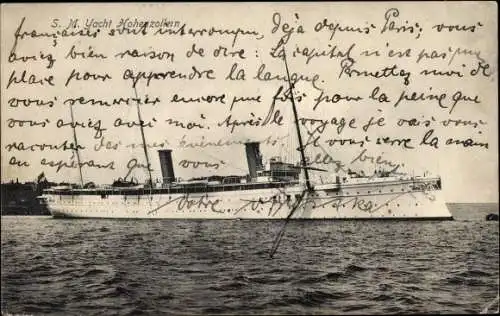 S. M. Yacht Hohenzollern
françaises sont interrompu, déjà depuis Paris, vous
aviez bien raison de dire: La capital n'est pas un
place pour apprendre la langue. Permettez moi de
vous remercier encore une fois pour la peine que
vous avez avec moi. Après le voyage je vous
raconter des événements. Je vous serre la main
en espérant que vous allez bien
Votre